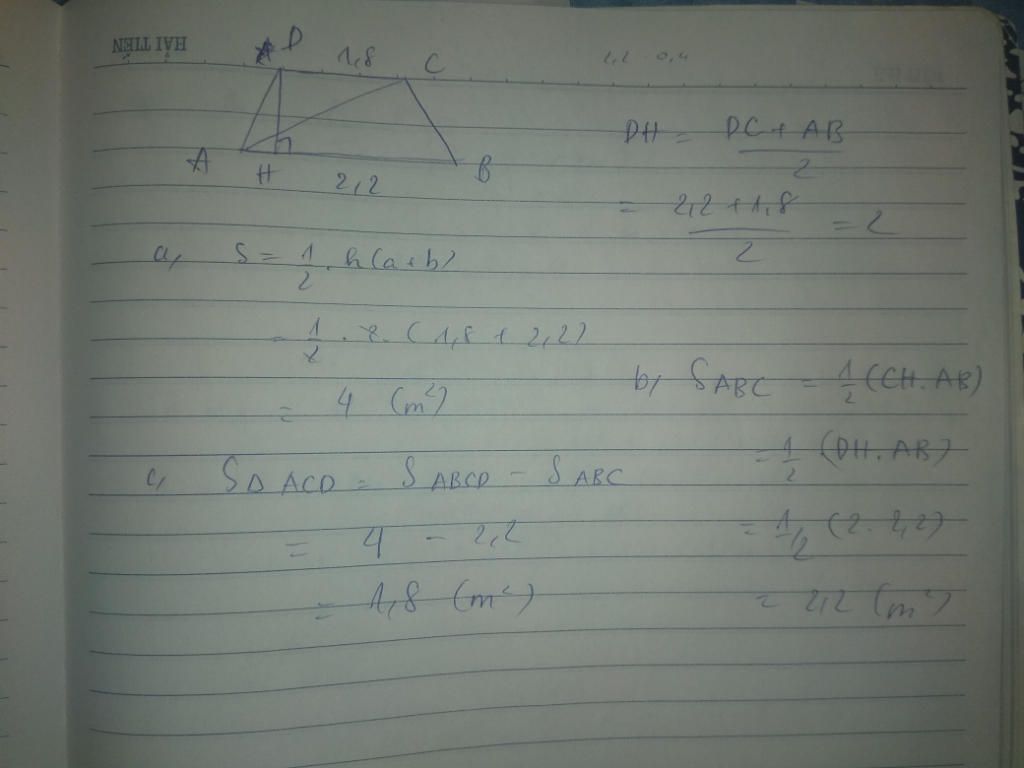 HẢI TIẾN
D 1,8 C
A H 2,2 B
DH = DC + AB / 2
= 2,2 + 1,8 / 2 = 2
a, S = 1/2 . h(a+b)
= 1/2 . 2 . (1,8 + 2,2)
= 4 (m²)
b, S ABC = 1/2 (CH . AB)
= 1/2 (DH . AB)
= 1/2 (2 . 2,2)
= 2,2 (m²)
c, SΔ ACD = S ABCD - S ABC
= 4 - 2,2
= 1,8 (m²)